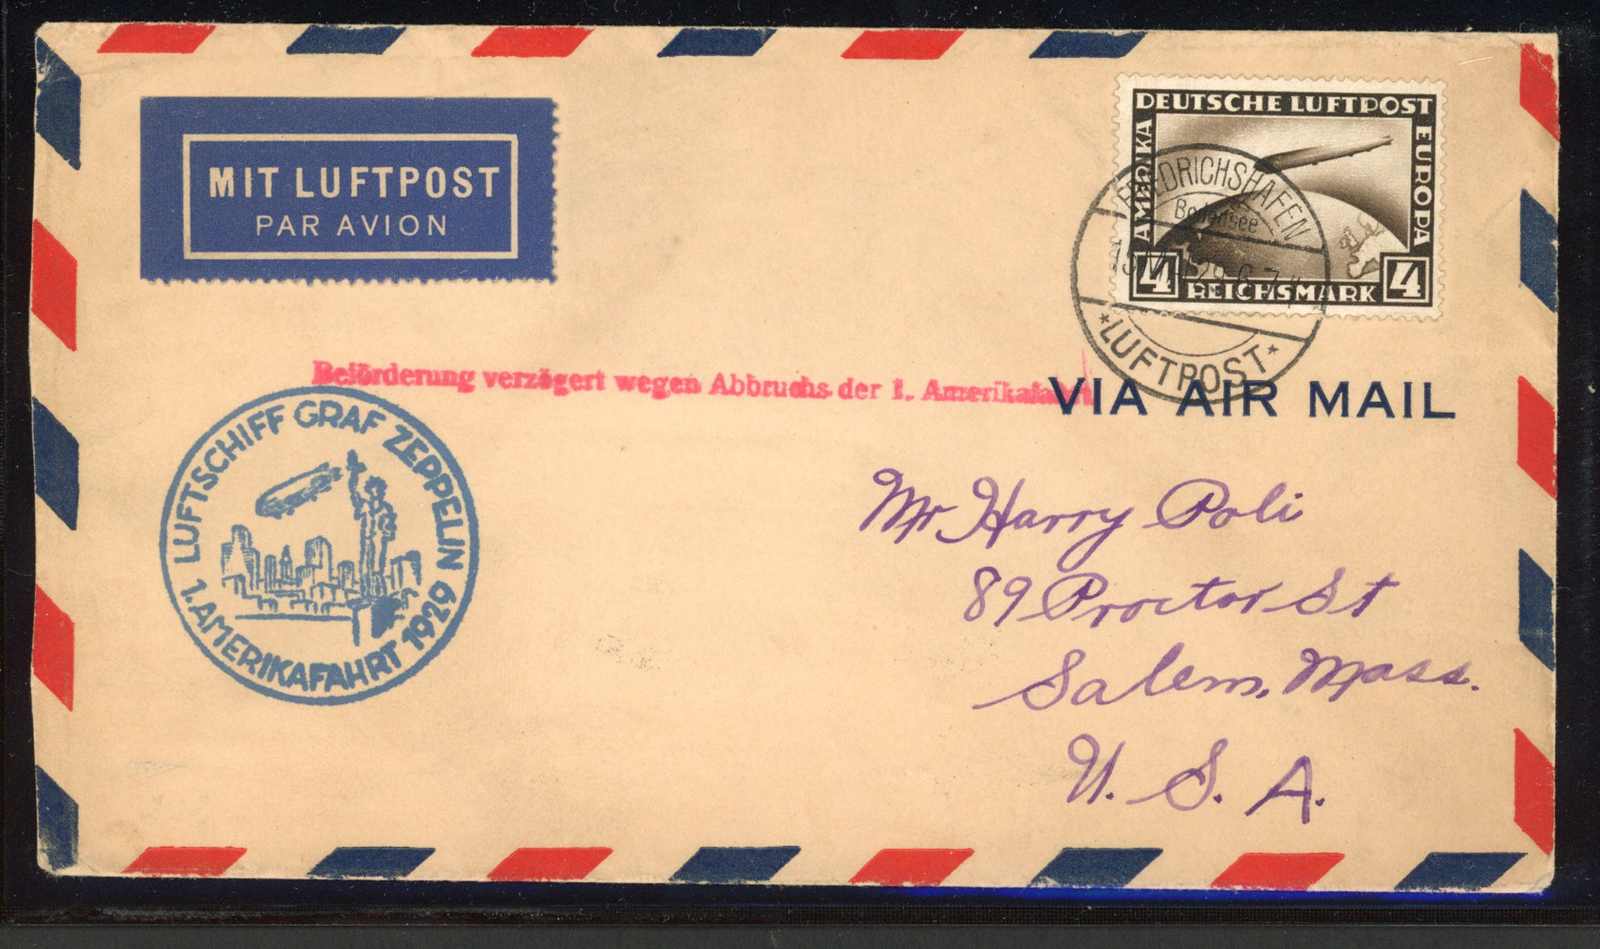 MIT LUFTPOST
PAR AVION
DEUTSCHE LUFTPOST
AMERIKA
EUROPA
4 REICHSMARK 4
FRIEDRICHSHAFEN
Bodensee
*LUFTPOST*
Beförderung verzögert wegen Abbruchs der 1. Amerikafahrt
VIA AIR MAIL
LUFTSCHIFF GRAF ZEPPELIN
1. AMERIKAFAHRT 1929
Mr Harry Poli
89 Proctor St
Salem, Mass.
U. S. A.